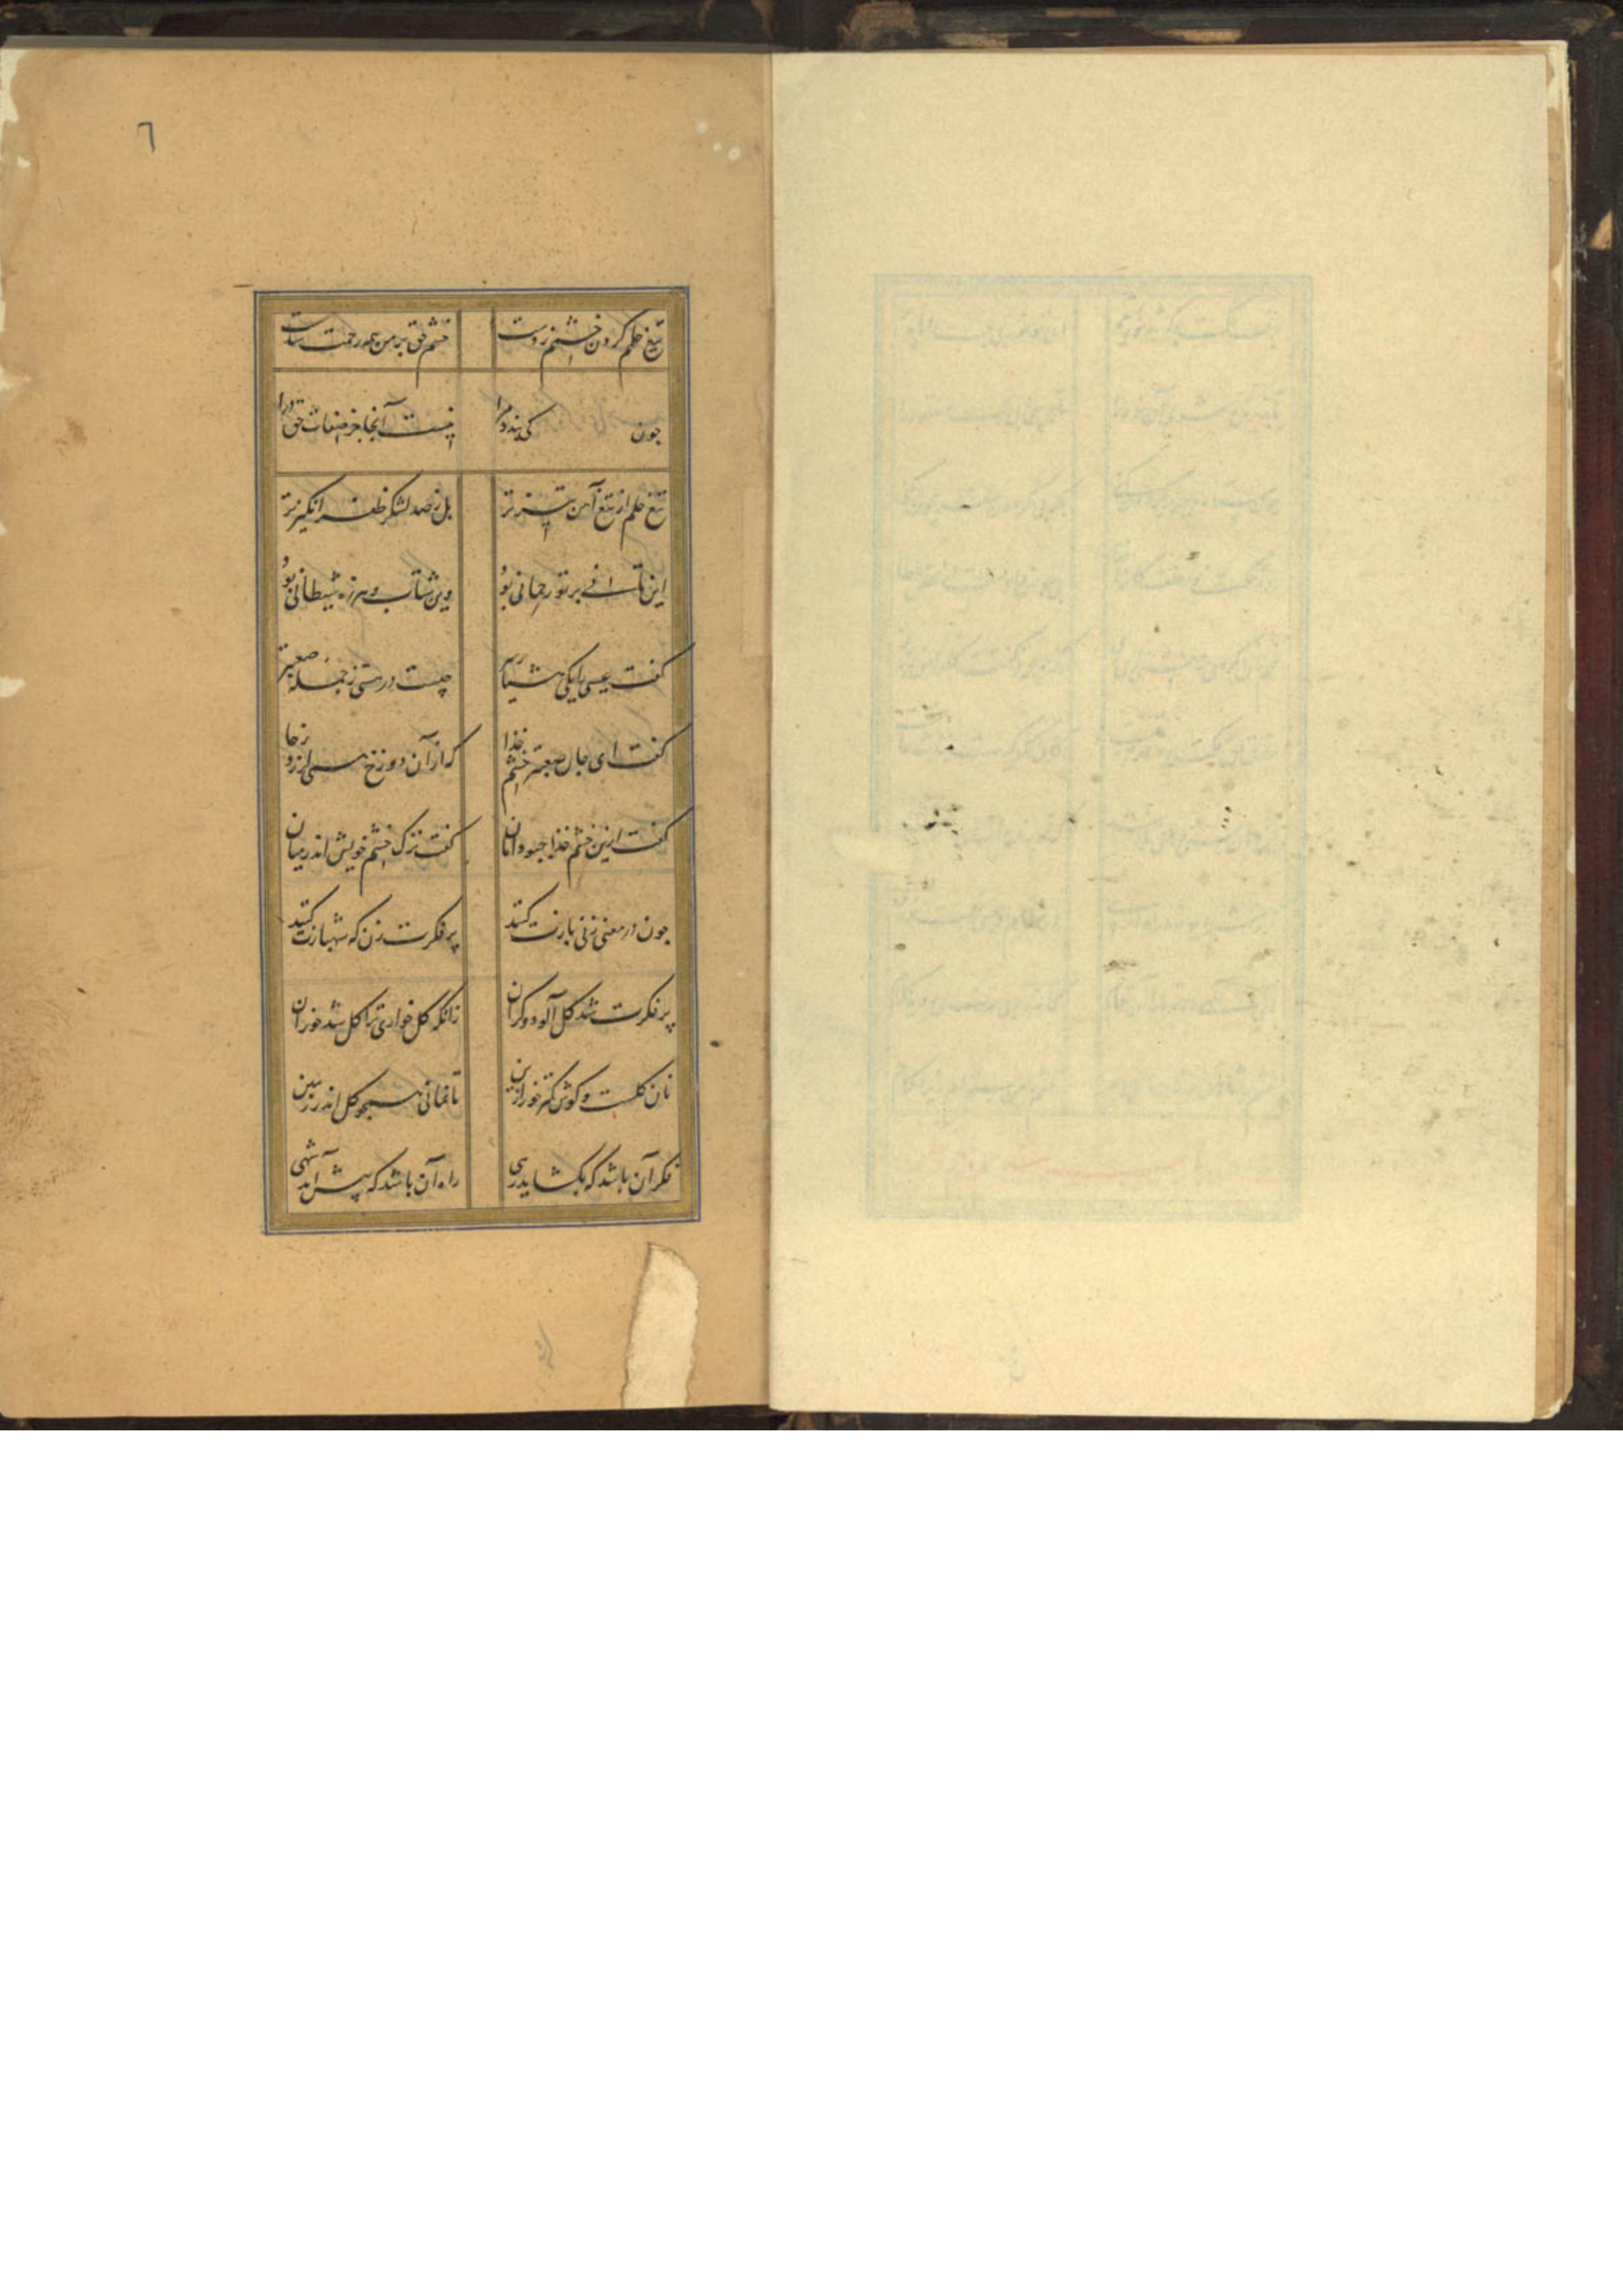 ٦
تیغ حلم گردن خشمم زدست خشم حق بر من همه رحمت شدست
چون کی بندد مرا نیست آنجا جز صفات حق درا
تیغ حلم از تیغ آهن تیزتر بل ز صد لشکر ظفرانگیزتر
این تأنی پرتو رحمانی بود وین شتاب و هرزه شیطانی بود
گفت عیسی را یکی هشیار سر چیست در هستی ز جمله صعبتر
گفت ای جان صعبتر خشم خدا که از آن دوزخ همی لرزد ز جا
گفت ازین خشم خدا چبود امان گفت ترک خشم خویش اندر میان
چون در معنی زنی بازت کنند پر فکرت زن که شهبازت کنند
پر فکرت شد گل آلود و گران زانکه گل خواری ترا گل شد خوران
نان گلست و گوشت کمتر خور ازین تا نمانی همچو گل اندر زمین
فکر آن باشد که بگشاید رهی راه آن باشد که پیش آمد شهی